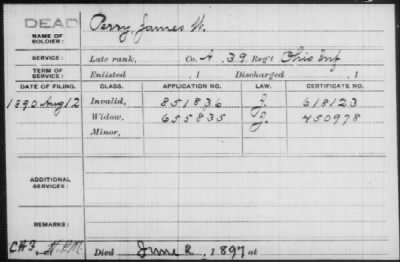 DEAD
NAME OF SOLDIER: Perry, James W.
SERVICE: Late rank, Co. A, 39 Reg't Ohio Inf
TERM OF SERVICE: Enlisted , 1 Discharged , 1
DATE OF FILING. CLASS. APPLICATION NO. LAW. CERTIFICATE NO.
1890 Aug 12 Invalid, 851836 J. 618123
Widow, 655835 J. 450978
Minor,
ADDITIONAL SERVICES:
REMARKS:
Died June 2, 1897 at